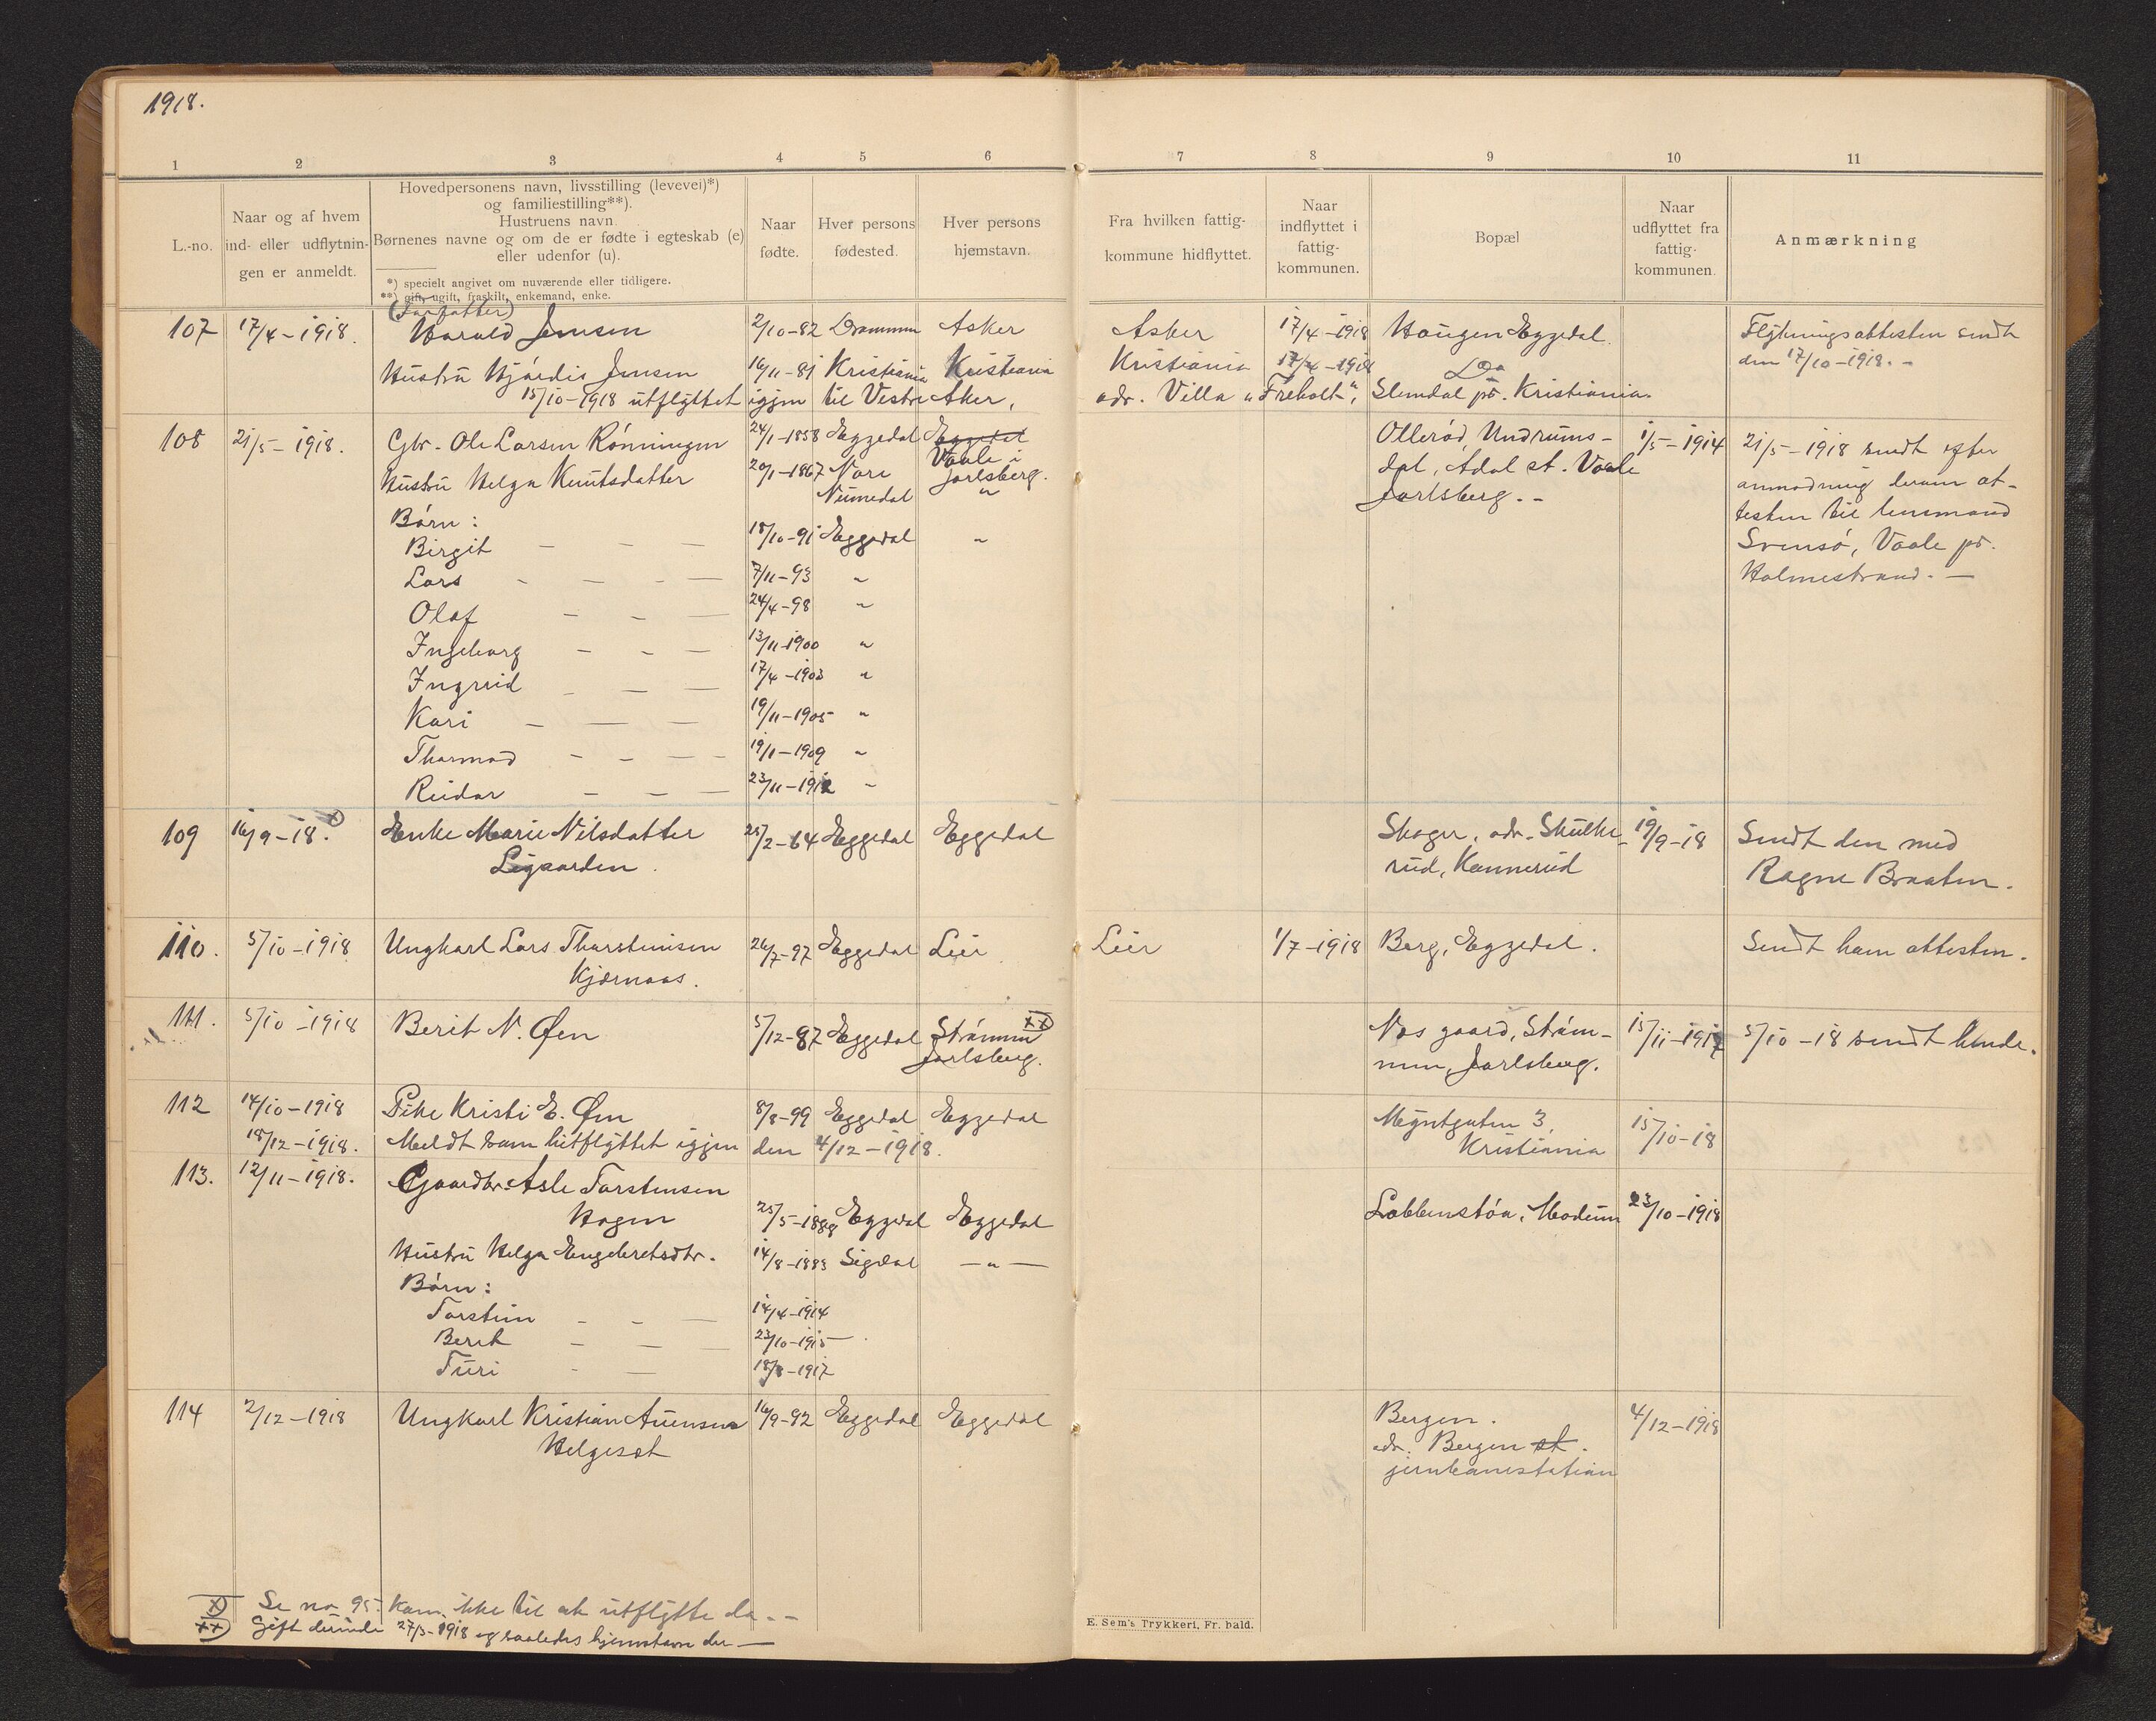 1918.
1 2 3 4 5 6 7 8 9 10 11
L.-no.
Naar og af hvem
ind- eller udflytnin-
gen er anmeldt.
Hovedpersonens navn, livsstilling (levevei)*)
og familiestilling**).
Hustruens navn
Børnenes navne og om de er fødte i egteskab (e)
eller udenfor (u).
*) specielt angivet om nuværende eller tidligere.
**) gift, ugift, fraskilt, enkemand, enke.
Naar
fødte.
Hver persons
fødested.
Hver persons
hjemstavn.
Fra hvilken fattig-
kommune hidflyttet.
Naar
indflyttet i
fattig-
kommunen.
Bopæl
Naar
udflyttet fra
fattig-
kommunen.
Anmærkning
(Forfatter)
107 17/4-1918. Harald Jensen 2/10-82 Drammen Asker Asker 17/4-1918 Haugen Eggedal. Flytningsattesten sendt
Hustru Hjördis Jensen 16/11-81 Kristiania Kristiania Kristiania 17/4-1918 Do den 17/10-1918.-
15/10-1918 utflyttet igjen til Vestre Aker, adr. Villa "Freholt", Slemdal pr. Kristiania.
108 21/5-1918. Gbr. Ole Larsen Rönningen 24/1-1858 Eggedal Eggedal Olleröd, Undrums- 1/5-1914 21/5-1918 sendt efter
Vaale i
Hustru Helga Knutsdatter 20/1-1867 Nore Jarlsberg. dal, Adal st. Vaale anmodning derom at-
Numedal " Jarlsberg.- testen til lensmand
Börn:
Birgit - - - 18/10-91 Eggedal " Svensö, Vaale pr.
Lars - - - - 7/11-93 " Holmestrand.-
Olaf - - - 24/4-98 "
Ingeborg - - - 13/11-1900 "
Ingrid - - - 17/4-1903 "
Kari - - - 19/11-1905 "
Thormod - - - - 19/1-1909 "
Reidar - - - 23/11-1912 "
109 16/9-18. x) Enke Marie Nilsdatter 25/2-64 Eggedal Eggedal Skoger, adr. Skulke- 19/9-18 Sendt den med
Ligaarden. rud, Konnerud Ragne Braaten.
110. 5/10-1918 Ungkarl Lars Thorsteinsen 26/7-97 Eggedal Leir Leir 1/7-1918 Borg, Eggedal. Sendt ham attesten.
Kjernaas.
111. 5/10-1918 Berit N. Øen 5/12-87 Eggedal Strömm xx) Nos gaard, Ström- 15/11-1917 5/10-18 sendt hende.
Jarlsberg. men, Jarlsberg.
112 14/10-1918 Pike Kristi E. Øen 8/8-99 Eggedal Eggedal Myntgaten 3, 15/10-18
18/12-1918. Meldt som hitflyttet igjen den 4/12-1918. Kristiania
113. 12/11-1918. Gaardbr. Asle Torstensen
Hagen 25/5-1888 Eggedal Eggedal Labbenstöa, Modum 23/10-1918
Hustru Helga Engebretsdtr. 14/8-1883 Sigdal -"-
Börn:
Torstein - - - 14/4-1914
Berit - - - 23/10-1915
Turi - - 18/8-1917
114 2/12-1918 Ungkarl Kristian Auensen 16/9-92 Eggedal Eggedal Bergen. 4/12-1918
Helgeset adr. Bergen st.
jernbanestation
x) Se no 95. Kom ikke til at utflytte da.-
xx) Gift derinde 27/3-1918 og saaledes hjemstavn der-
E. Sem's Trykkeri, Fr. hald.